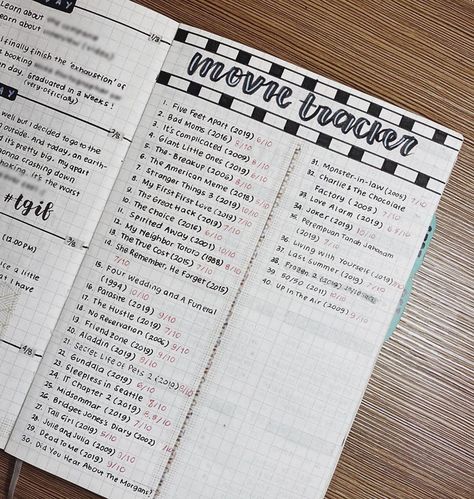 AY
Learn about
earn about
1/8
I finally finish the 'exhaustion' of
booking
day. Graduated in 2 weeks!
(very-officially)
AY
well but I decided to go to the
outside. And today, an earth-
it's pretty big. my apart
onna crashing down
it's the worst
2/8
#tgif
3/8
(12.00PM)
a little
I have
4/8
movie tracker
1. Five Feet Apart (2019) 6/10
2. Bad Moms (2016) 8/10
3. It's Complicated (2009) 8/10
4. Giant Little Ones (2019) 6/10
5. The Break-up (2006) 6/10
6. The American Meme (2018) 5/10
7. Stranger Things 3 (2019) 10/10
8. My First First Love (2019) 7/10
9. The Great Hack (2019) 7/10
10. The Choice (2016) 6/10
11. Spirited Away (2001) 10/10
12. My Neighbor Totoro (1988) 8/10
13. The True Cost (2015) 7/10
14. She Remember, He Forget (2015)
7/10
15. Four Wedding and A Funeral
(1994) 7/10
16. Parasite (2019) 9/10
17. The Hustle (2019) 7/10
18. No Reservation (2006)
19. Friend Zone (2019) 7/10
20. Aladdin (2019) 9/10
21. Secret Life of Pets 2 (2019) 8/10
22. Gundala (2019) 6/10
23. Sleepless in Seattle 8/10
24. IT Chapter 2 (2019)
25. Midsommar (2019) 7/10
26. Bridget Jones's Diary (2002)
27. Tall Girl (2019) 5/10
28. Julie and Julia (2009) 8/10
29. Dead To Me (2019) 9/10
30. Did You Hear About The Morgans?
31. Monster-in-law (2005) 7/10
32. Charlie & The Chocolate
Factory (2005) 7/10
33. Love Alarm (2019) 6/10
34. Joker (2019) 10/10
35. Perempuan Tanah Jahanam
(2019) 7/10
36. Living with Yourself (2019)
37. Last Summer (2019) 7/10
38. Frozen 2 (2019)
39. 50/50 (2011) 10/10
40. Up In The Air (2009) 9/10